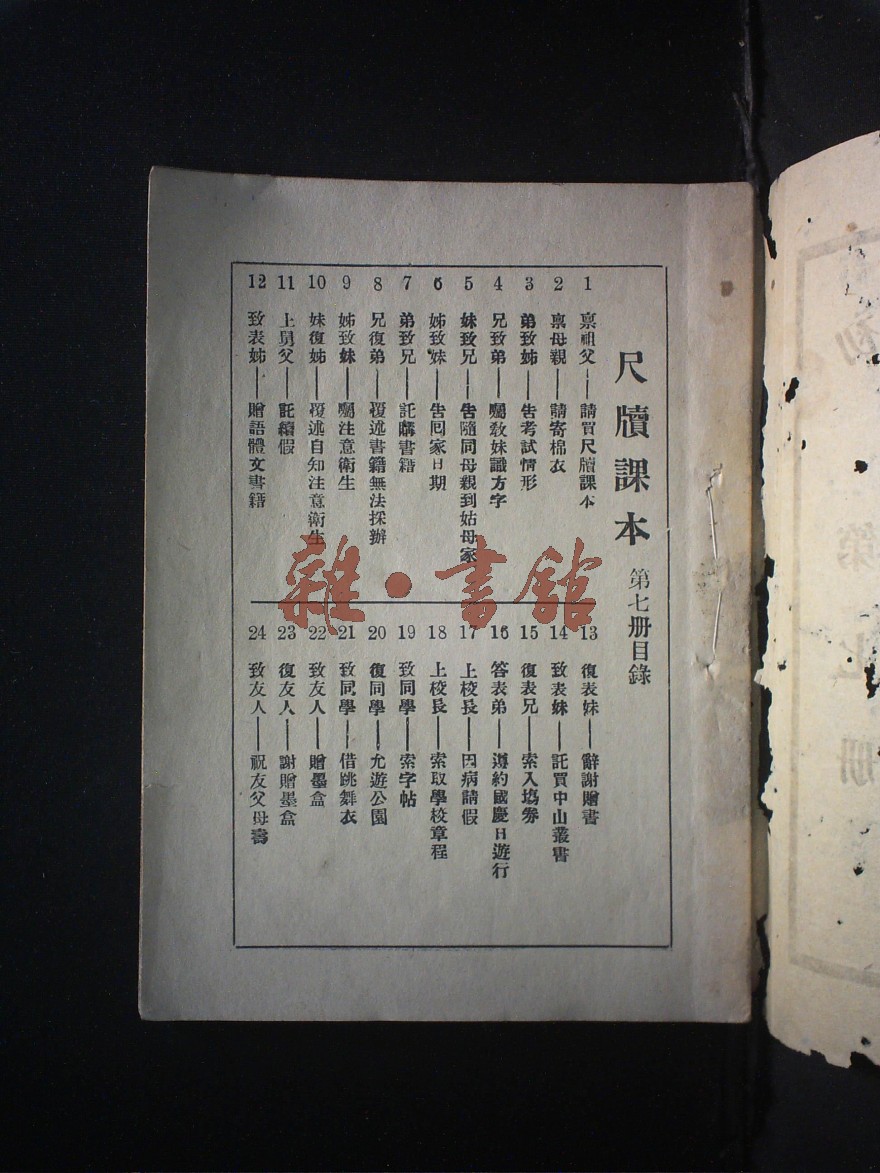 尺牘課本 第七册目錄
1 禀祖父——請買尺牘課本
2 禀母親——請寄棉衣
3 弟致姊——告考試情形
4 兄致弟——囑教妹識方字
5 妹致兄——告隨同母親到姑母家
6 姊致妹——告回家日期
7 弟致兄——託購書籍
8 兄復弟——覆述書籍無法採辦
9 姊致妹——囑注意衛生
10 妹復姊——覆述自知注意衛生
11 上舅父——託續假
12 致表姊——贈語體文書籍
13 復表妹——辭謝贈書
14 致表妹——託買中山叢書
15 復表兄——索入塲券
16 答表弟——遵約國慶日遊行
17 上校長——因病請假
18 上校長——索取學校章程
19 致同學——索字帖
20 復同學——允遊公園
21 致同學——借跳舞衣
22 致友人——贈墨盒
23 復友人——謝贈墨盒
24 致友人——祝友父母壽
雜·書館